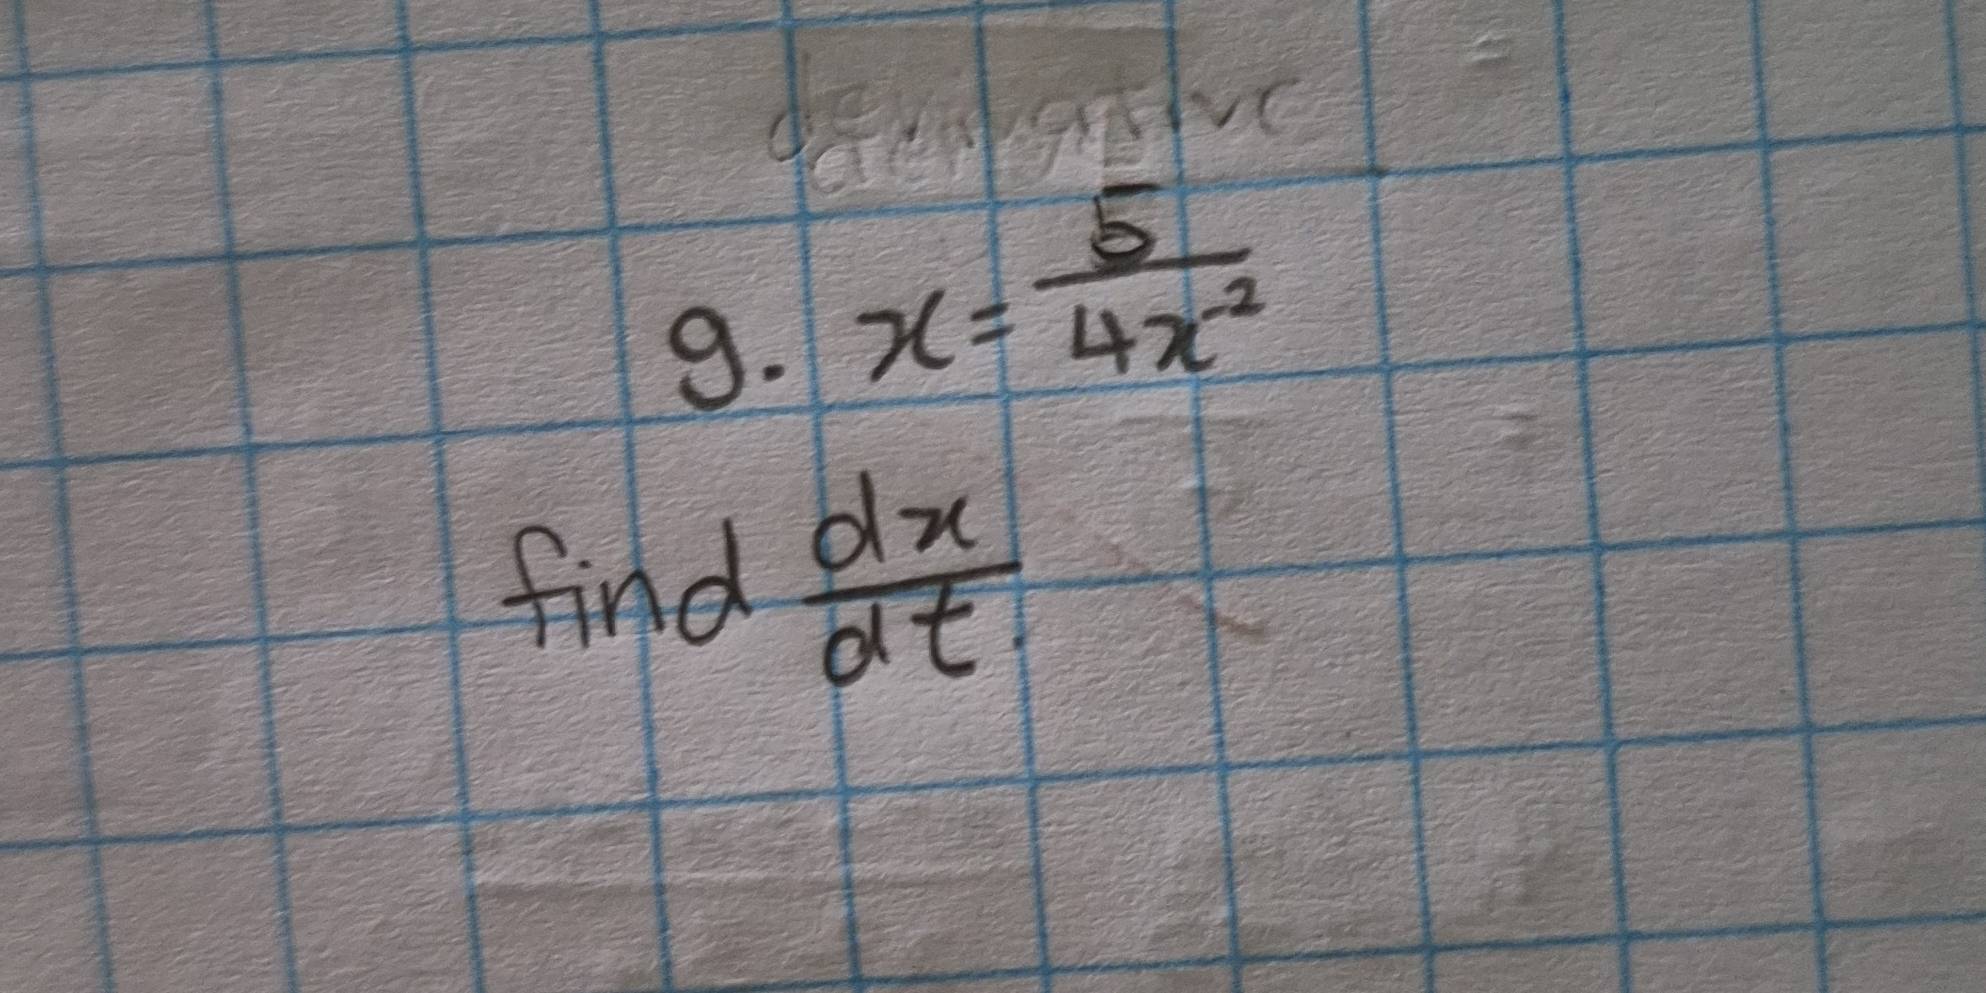 derivative
9. x = 5/4x⁻²
find dx/dt.